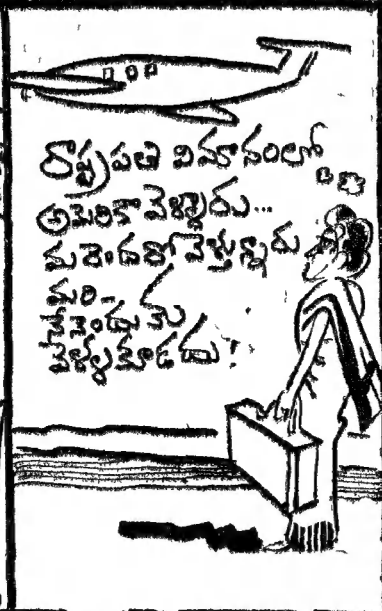 రాష్ట్రపతి విమానంలో
అమెరికా వెళ్ళారు...
మరెందరో వెళ్తున్నారు
మరి-
నేనెందుకు
వెళ్ళకూడదు?